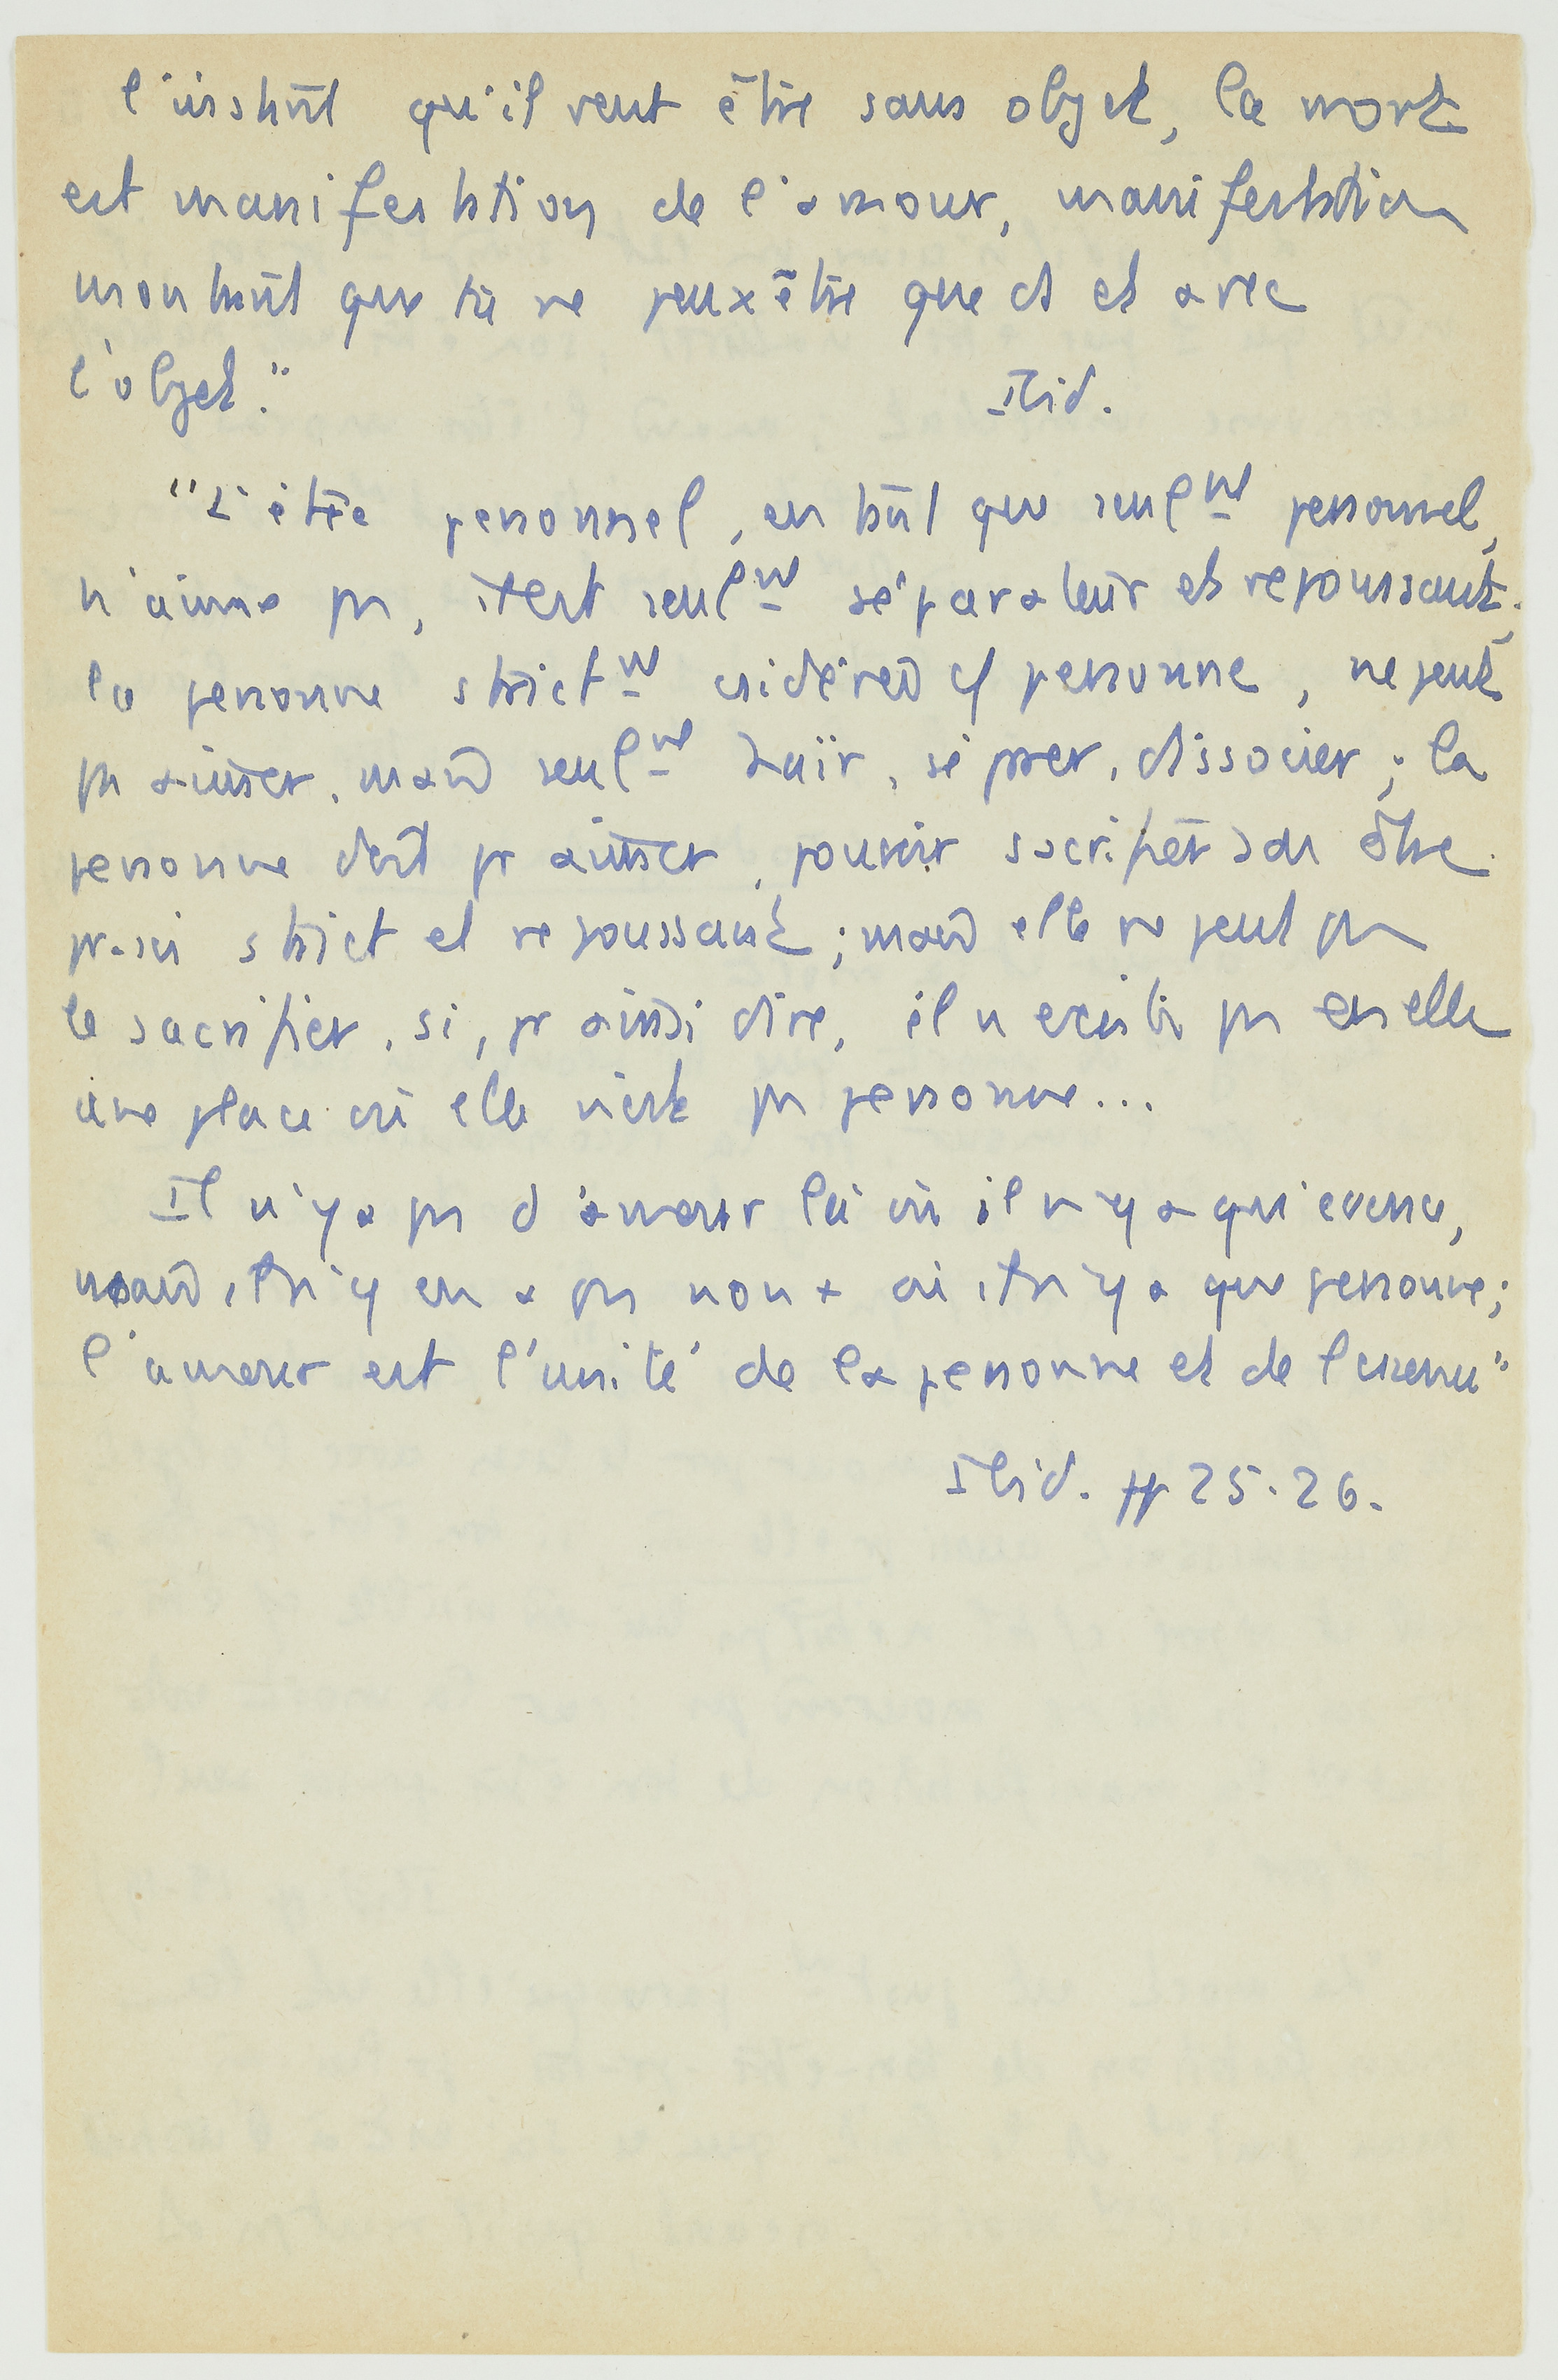 l'instant qu'il veut être sans objet, la mort
est manifestation de l'amour, manifestation
montrant que tu ne peux être que ds et avec
l'objet."
Ibid.
"L'être personnel, en tant que seulmt personnel,
n'aime pas, il est seulmt séparateur et repoussant;
la personne strictmt considérée comme personne, ne peut
pas aimer, mais seulmt haïr, séparer, dissocier; la
personne doit pr aimer, pouvoir sacrifier son être
pr-soi strict et repoussant; mais elle ne peut pas
le sacrifier, si, pr ainsi dire, il n'existe pas en elle
une place où elle n'est pas personne...
Il n'y a pas d'amour là où il n'y a qu'essence,
mais il n'y en a pas non + où il n'y a que personne;
l'amour est l'unité de la personne et de l'essence"
Ibid. pp 25-26.